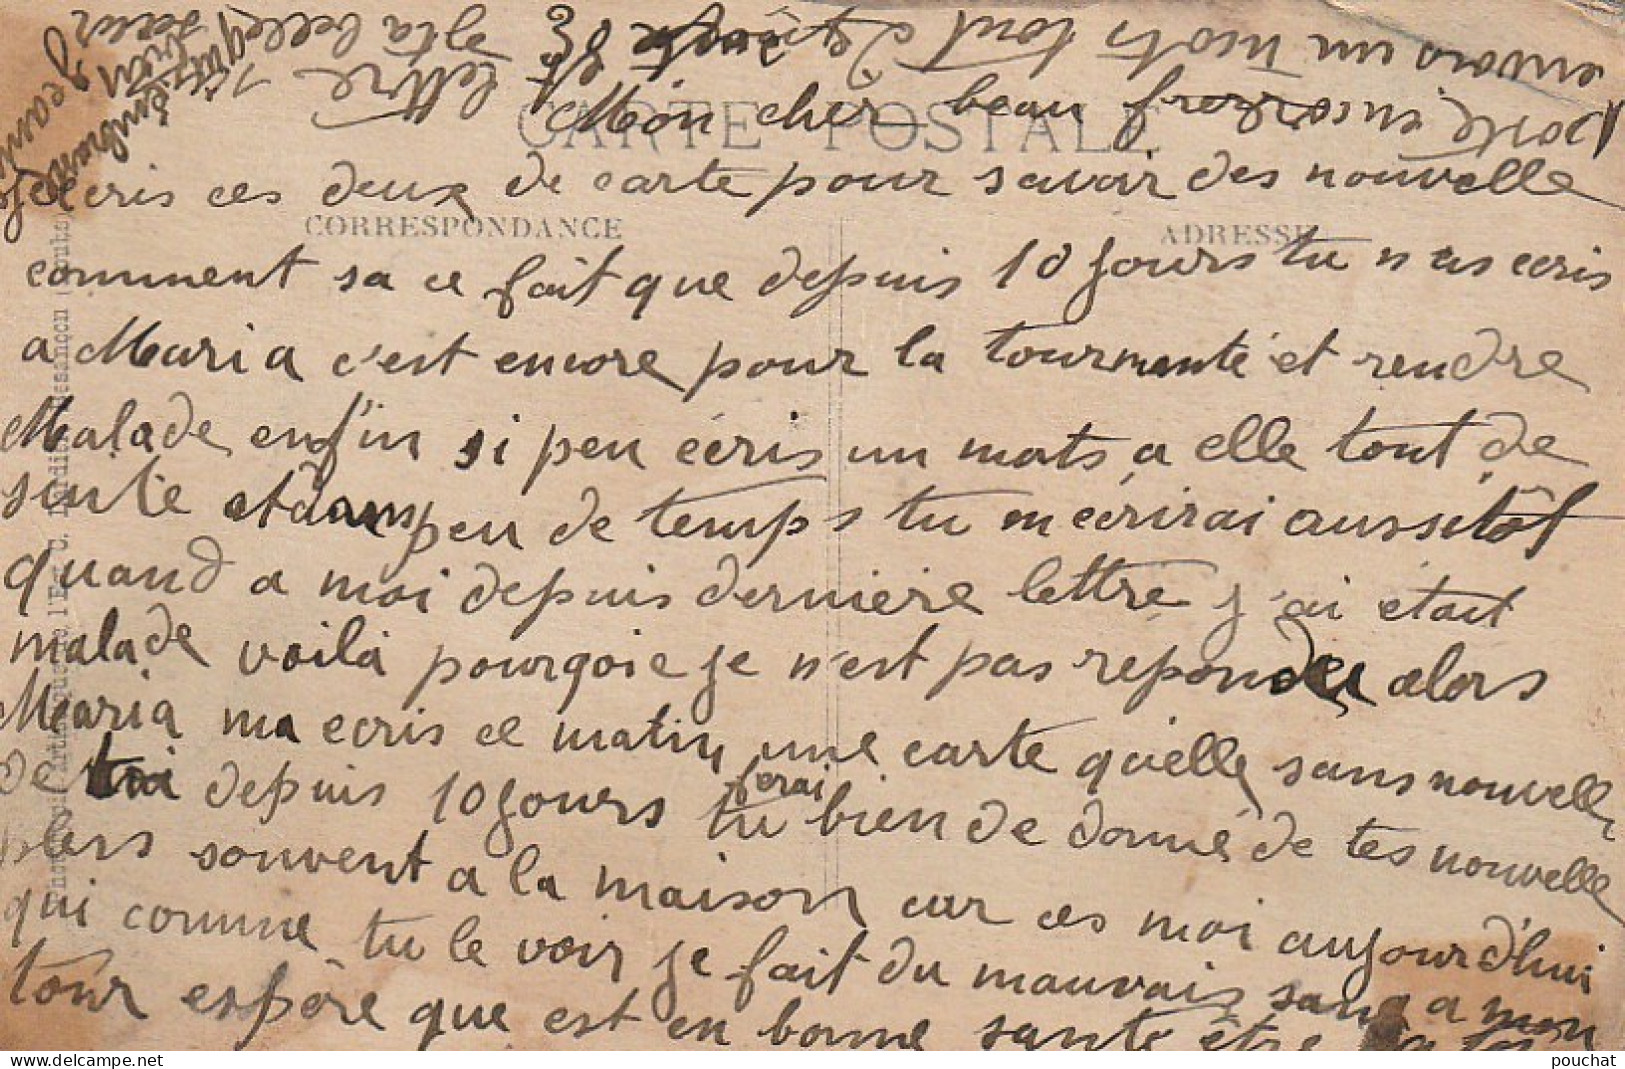 CARTE POSTALE
CORRESPONDANCE
ADRESSE
Mon cher beau frere
Je ecris ces deux de carte pour savoir des nouvelle
comment sa ce fait que depuis 10 jours tu n as ecris
a Maria c'est encore pour la tourmenté et rendre
Malade enfin si peu écris un mots a elle tout de
suite et dans peu de temps tu m écrirai aussitôt
quand a moi depuis derniere lettre j'ai etait
malade voila pourqoie je n'est pas reponde alors
Maria ma ecris ce matin une carte qu'elle sans nouvelle
de toi depuis 10 jours tu ferai bien de donné de tes nouvelle
plus souvent a la maison car ces moi aujourd'hui
qui comme tu le voir je fait du mauvais sang a mon
tour espère que est en bonne santé être
envois un mots tout de suite
lettre
ta belle
soeur
qui
embrasse
bien
Jeanne
pouchat